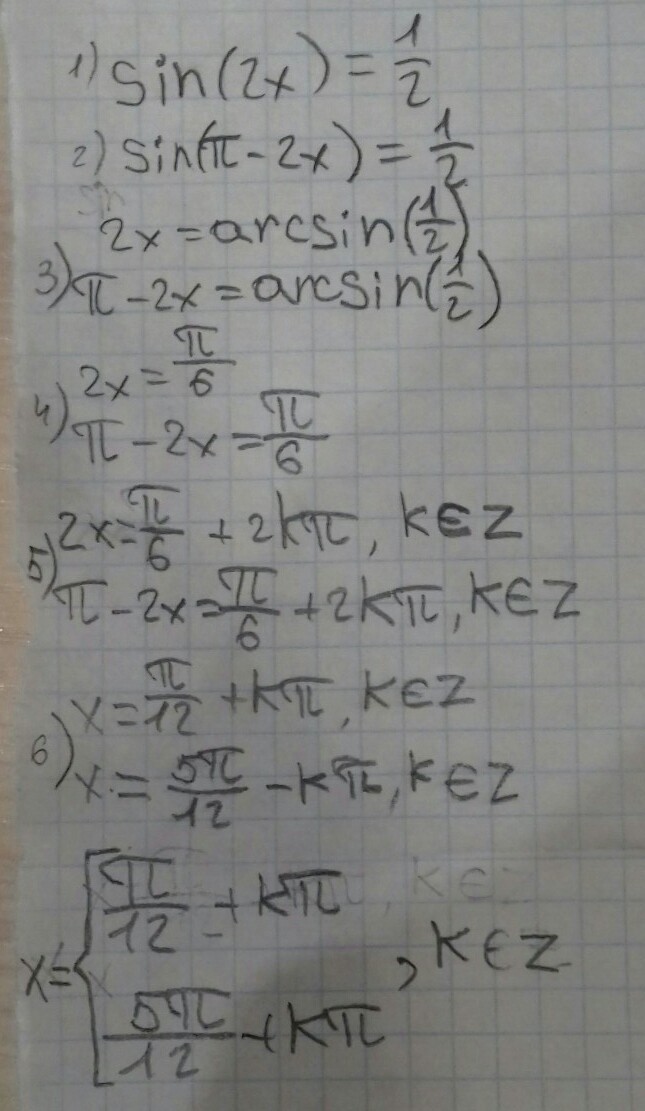 1) sin(2x) = 1/2
2) sin(π - 2x) = 1/2
2x = arcsin(1/2)
3) π - 2x = arcsin(1/2)
2x = π/6
4) π - 2x = π/6
2x = π/6 + 2kπ, k∈Z
5) π - 2x = π/6 + 2kπ, k∈Z
x = π/12 + kπ, k∈Z
6) x = 5π/12 - kπ, k∈Z
x = { [ π/12 + kπ
, k∈Z
5π/12 + kπ